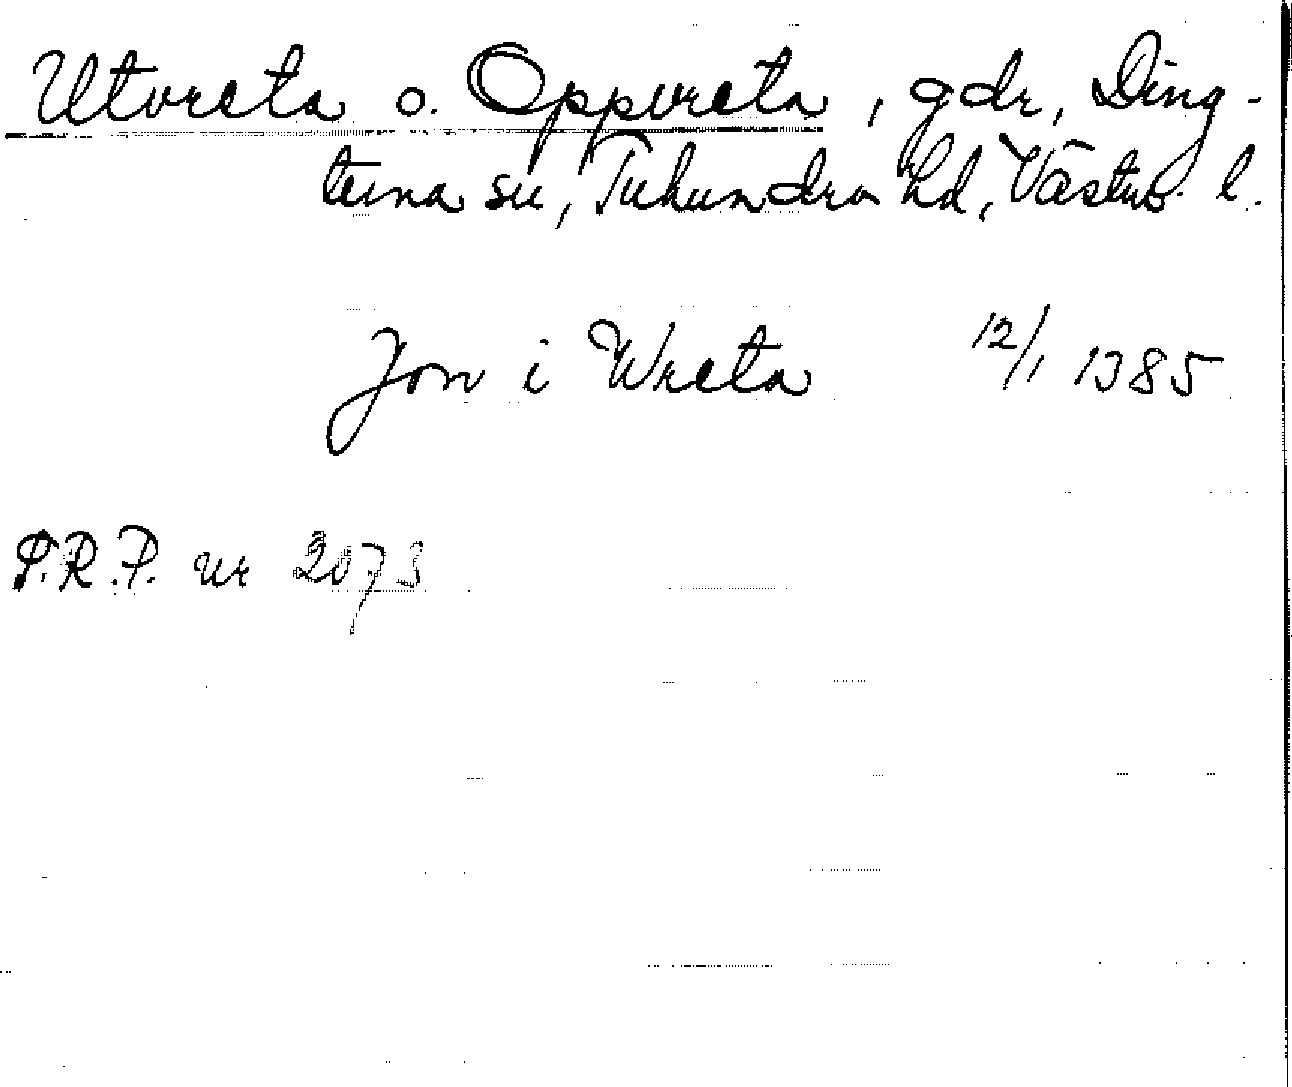 Utvreta o. Oppvreta, gdr, Ding-
tuna sn, Tuhundra hd, Västm. l.
Jon i Wreta 12/1 1385
P.R.P. nr 2073